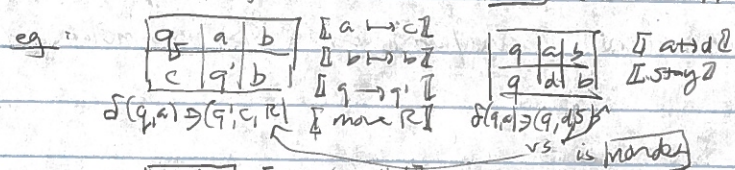 eg :
q | a | b
c | q' | b
⟦ a ↦ c ⟧
⟦ b ↦ b ⟧
⟦ q → q' ⟧
⟦ move R ⟧
δ(q,a) ∋ (q', c, R)
q | a | b
q | d | b
⟦ a ↦ d ⟧
⟦ stay ⟧
δ(q,a) ∋ (q, d, S)
vs is nondet